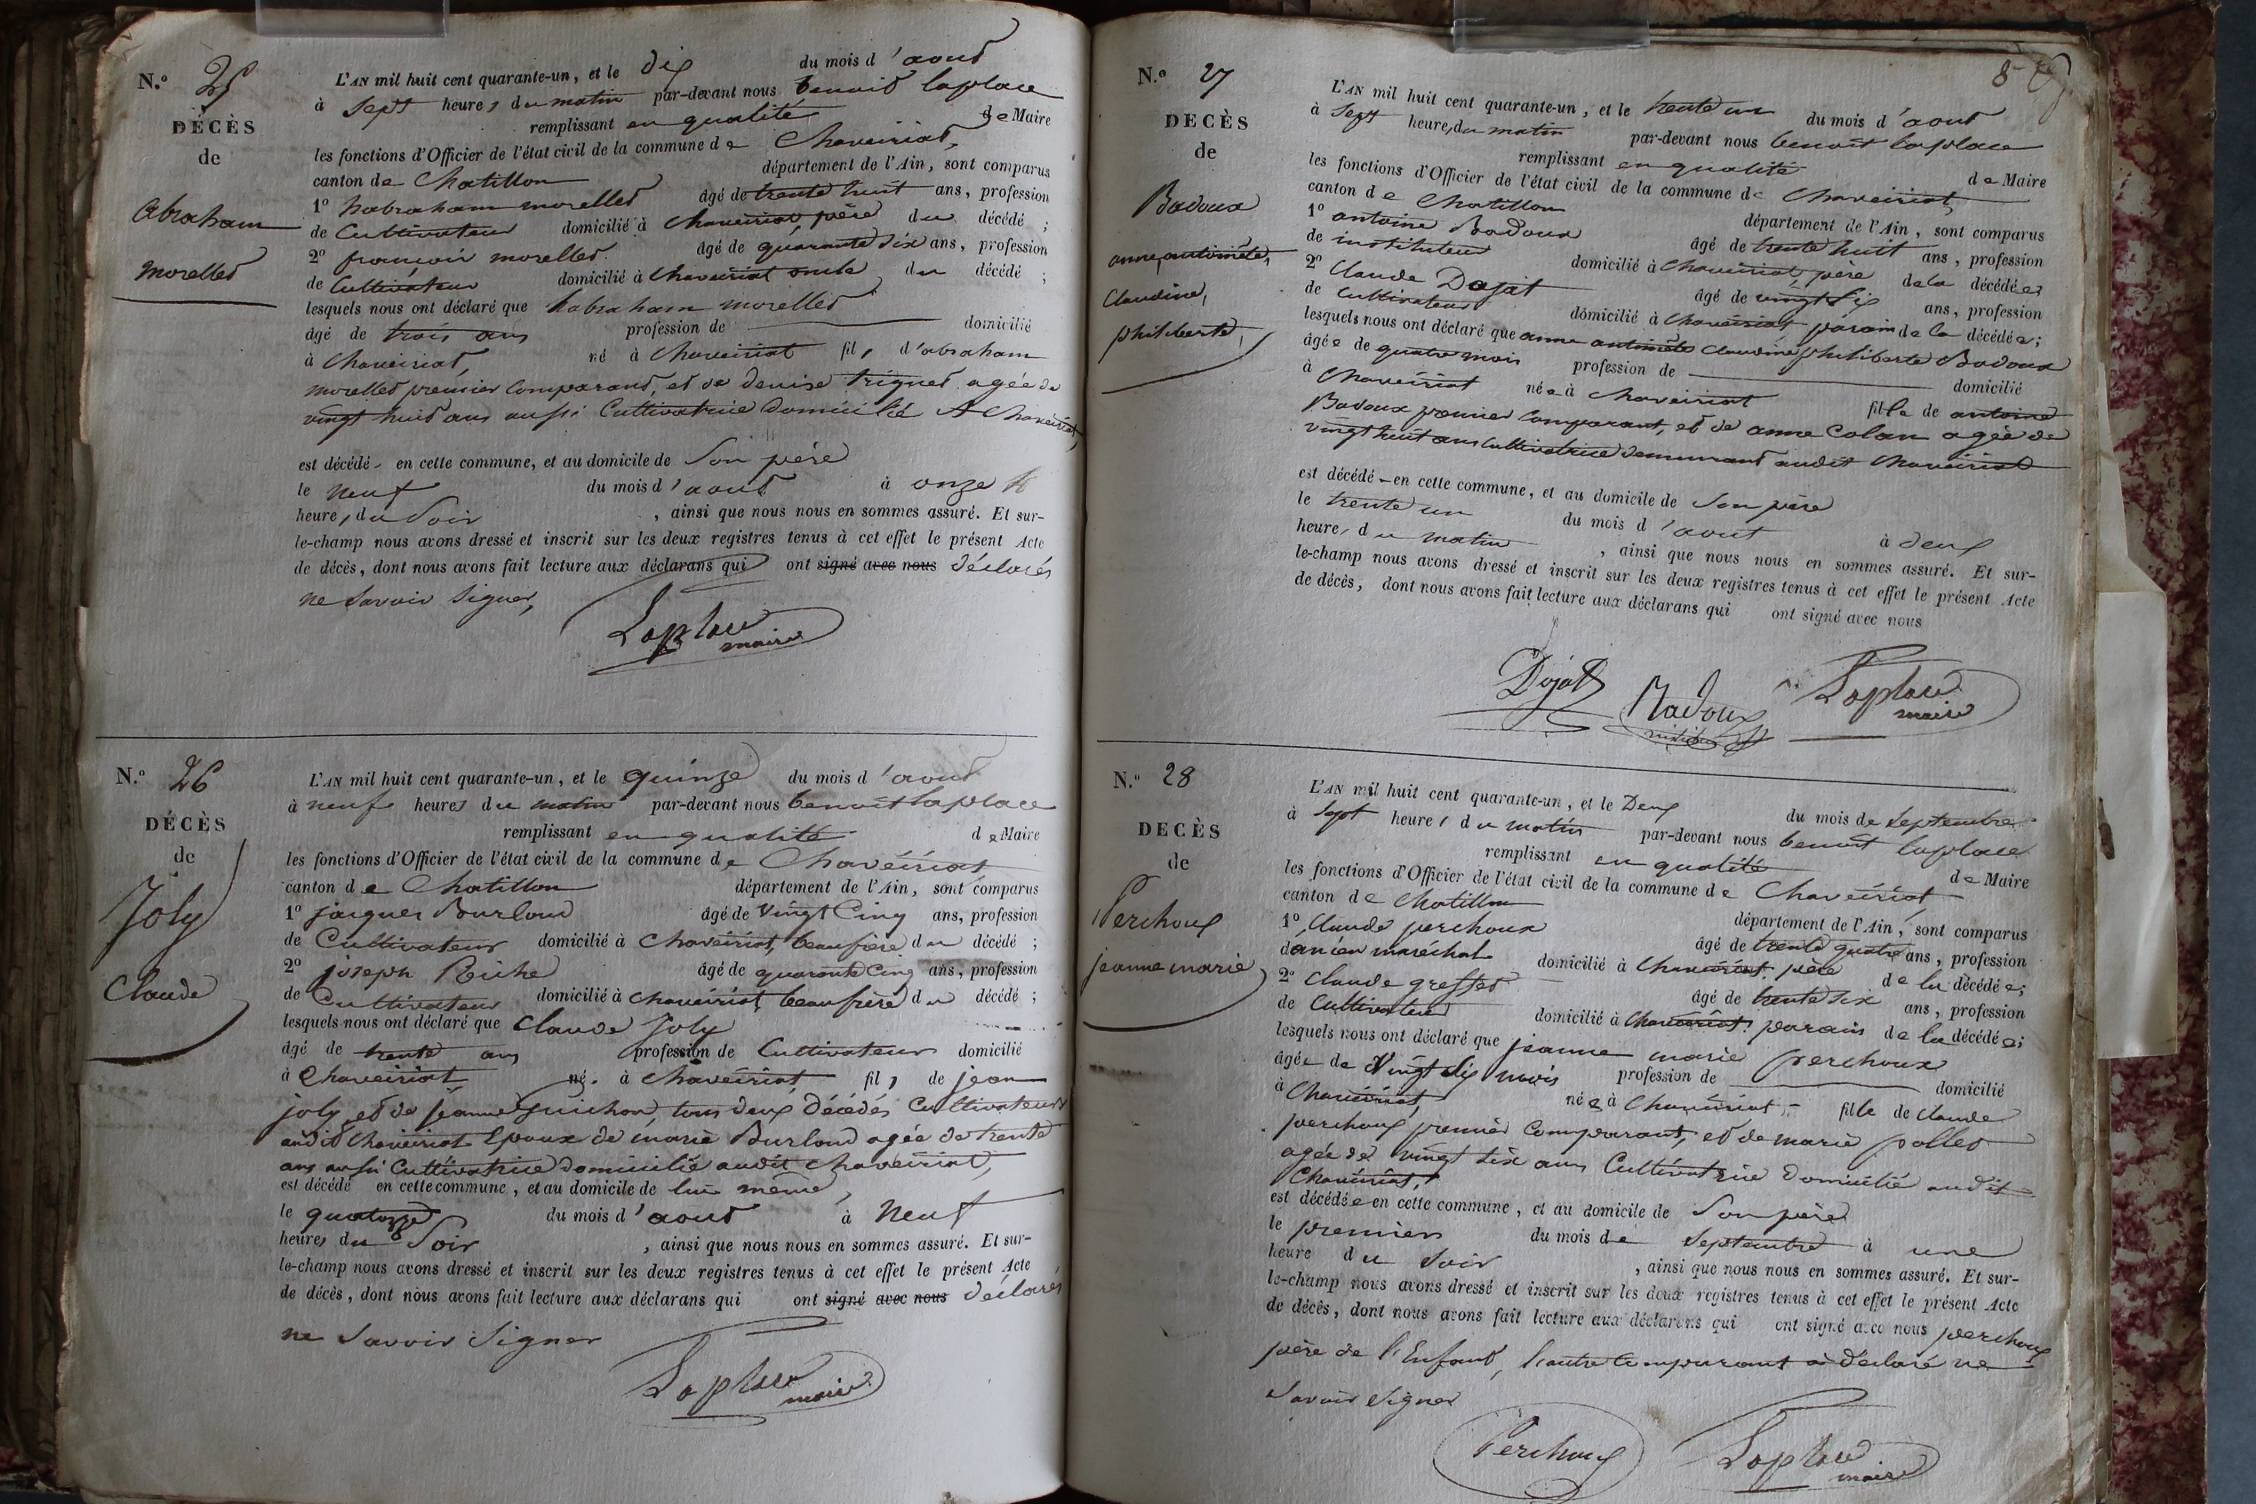 N.º 25
DÉCÈS
de
Abraham
morellet
L'AN mil huit cent quarante-un, et le dix du mois d'aout
à sept heures du matin par-devant nous benoit laplace
remplissant en qualité de Maire
les fonctions d'Officier de l'état civil de la commune de Chaveiriat,
canton de Chatillon département de l'Ain, sont comparus
1º habraham morellet âgé de trente huit ans, profession
de Cultivateur domicilié à Chaveiriat, père du décédé ;
2º françois morellet. âgé de quarante six ans, profession
de Cultivateur domicilié à Chaveiriat oncle du décédé ;
lesquels nous ont déclaré que habraham morellet
âgé de trois ans profession de domicilié
à Chaveiriat, né à Chaveiriat fils d'abraham
morellet premier Comparant, et de denise trignet agée de
vingt huit ans aussi Cultivatrice Domicilié A Chaveiriat,
est décédé en cette commune, et au domicile de Son père
le neuf du mois d'aout à onze
heures du Soir , ainsi que nous nous en sommes assuré. Et sur-
le-champ nous avons dressé et inscrit sur les deux registres tenus à cet effet le présent Acte
de décès, dont nous avons fait lecture aux déclarans qui ont signé avec nous déclarés
ne Savoir Signer,
Laplace
maire
N.º 26
DÉCÈS
de
Joly
Claude
L'AN mil huit cent quarante-un, et le quinze du mois d'aout
à neuf heures du matin par-devant nous benoit laplace
remplissant en qualité de Maire
les fonctions d'Officier de l'état civil de la commune de Chavéiriat
canton de Chatillon département de l'Ain, sont comparus
1º jacques Burloud âgé de Vingt Cinq ans, profession
de Cultivateur domicilié à Chaveiriat, beaufrère du décédé ;
2º joseph Riche âgé de quarante Cinq ans, profession
de Cultivateur domicilié à chavéiriat, beaufrère du décédé ;
lesquels nous ont déclaré que Claude Joly
âgé de trente ans profession de Cultivateur domicilié
à Chaveiriat né à Chaveiriat fils de jean
joly et de jeanne Guichon, tous deux Décédés Cultivateurs
audit Chaveiriat Epoux de marie Burloud agée de trente
ans aussi Cultivatrice Domicilié audit chaveiriat,
est décédé en cette commune, et au domicile de lui même,
le quatorze du mois d'aout à neuf
heures du Soir , ainsi que nous nous en sommes assuré. Et sur-
le-champ nous avons dressé et inscrit sur les deux registres tenus à cet effet le présent Acte
de décès, dont nous avons fait lecture aux déclarans qui ont signé avec nous déclarés
ne Savoir Signer
Laplace
maire
N.º 27
DECÈS
de
Badoux
anne, antoinéte,
Claudine,
philiberte,
L'AN mil huit cent quarante-un, et le trente un du mois d'aout
à Sept heures du matin par-devant nous benoit laplace
remplissant en qualité de Maire
les fonctions d'Officier de l'état civil de la commune de Chaveiriat,
canton de Chatillon département de l'Ain, sont comparus
1º antoine Badoux âgé de trente huit ans, profession
de instituteur domicilié à Chaveiriat, père de la décédée ;
2º Claude Dajat âgé de vingt Six ans, profession
de Cultivateur domicilié à Chaveiriat parain de la décédée ;
lesquels nous ont déclaré que anne antoinéte Claudine philiberte Badoux
âgée de quatre mois profession de domicilié
à Chaveiriat née à Chaveiriat fille de antoine
Badoux premier Comparant, et de anne Colan agée de
vingt huit ans Cultivatrice Demeurant audit Chaveiriat
est décédé en cette commune, et au domicile de Son père
le trente un du mois d'aout à deux
heures du matin , ainsi que nous nous en sommes assuré. Et sur-
le-champ nous avons dressé et inscrit sur les deux registres tenus à cet effet le présent Acte
de décès, dont nous avons fait lecture aux déclarans qui ont signé avec nous
Dajat Badoux Laplace
maire
N.º 28
DECÈS
de
Perchoux
jeanne marie
L'AN mil huit cent quarante-un, et le Deux du mois de septembre
à sept heures du matin par-devant nous benoit laplace
remplissant en qualité de Maire
les fonctions d'Officier de l'état civil de la commune de Chaveiriat,
canton de Chatillon département de l'Ain, sont comparus
1º Claude perchoux âgé de trente quatre ans, profession
d'ancien maréchal domicilié à Chaveiriat père de la décédée ;
2º Claude greffet âgé de trente six ans, profession
de Cultivateur domicilié à Chaveiriat, parain de la décédée ;
lesquels nous ont déclaré que jeanne marie perchoux
âgée de Vingt Six mois profession de domicilié
à Chaveiriat, née à Chaveiriat fille de Claude
perchoux premier Comparant, et de marie pollet
agée de vingt six ans Cultivatrice Domicilié audit
Chaveiriat,
est décédée en cette commune, et au domicile de Son père
le premier du mois de Septembre à une
heure du Soir , ainsi que nous nous en sommes assuré. Et sur-
le-champ nous avons dressé et inscrit sur les deux registres tenus à cet effet le présent Acte
de décès, dont nous avons fait lecture aux déclarans qui ont signé avec nous perchoux
père de l'Enfant, l'autre Comparant a déclaré ne
Savoir Signer
Perchoux Laplace
maire